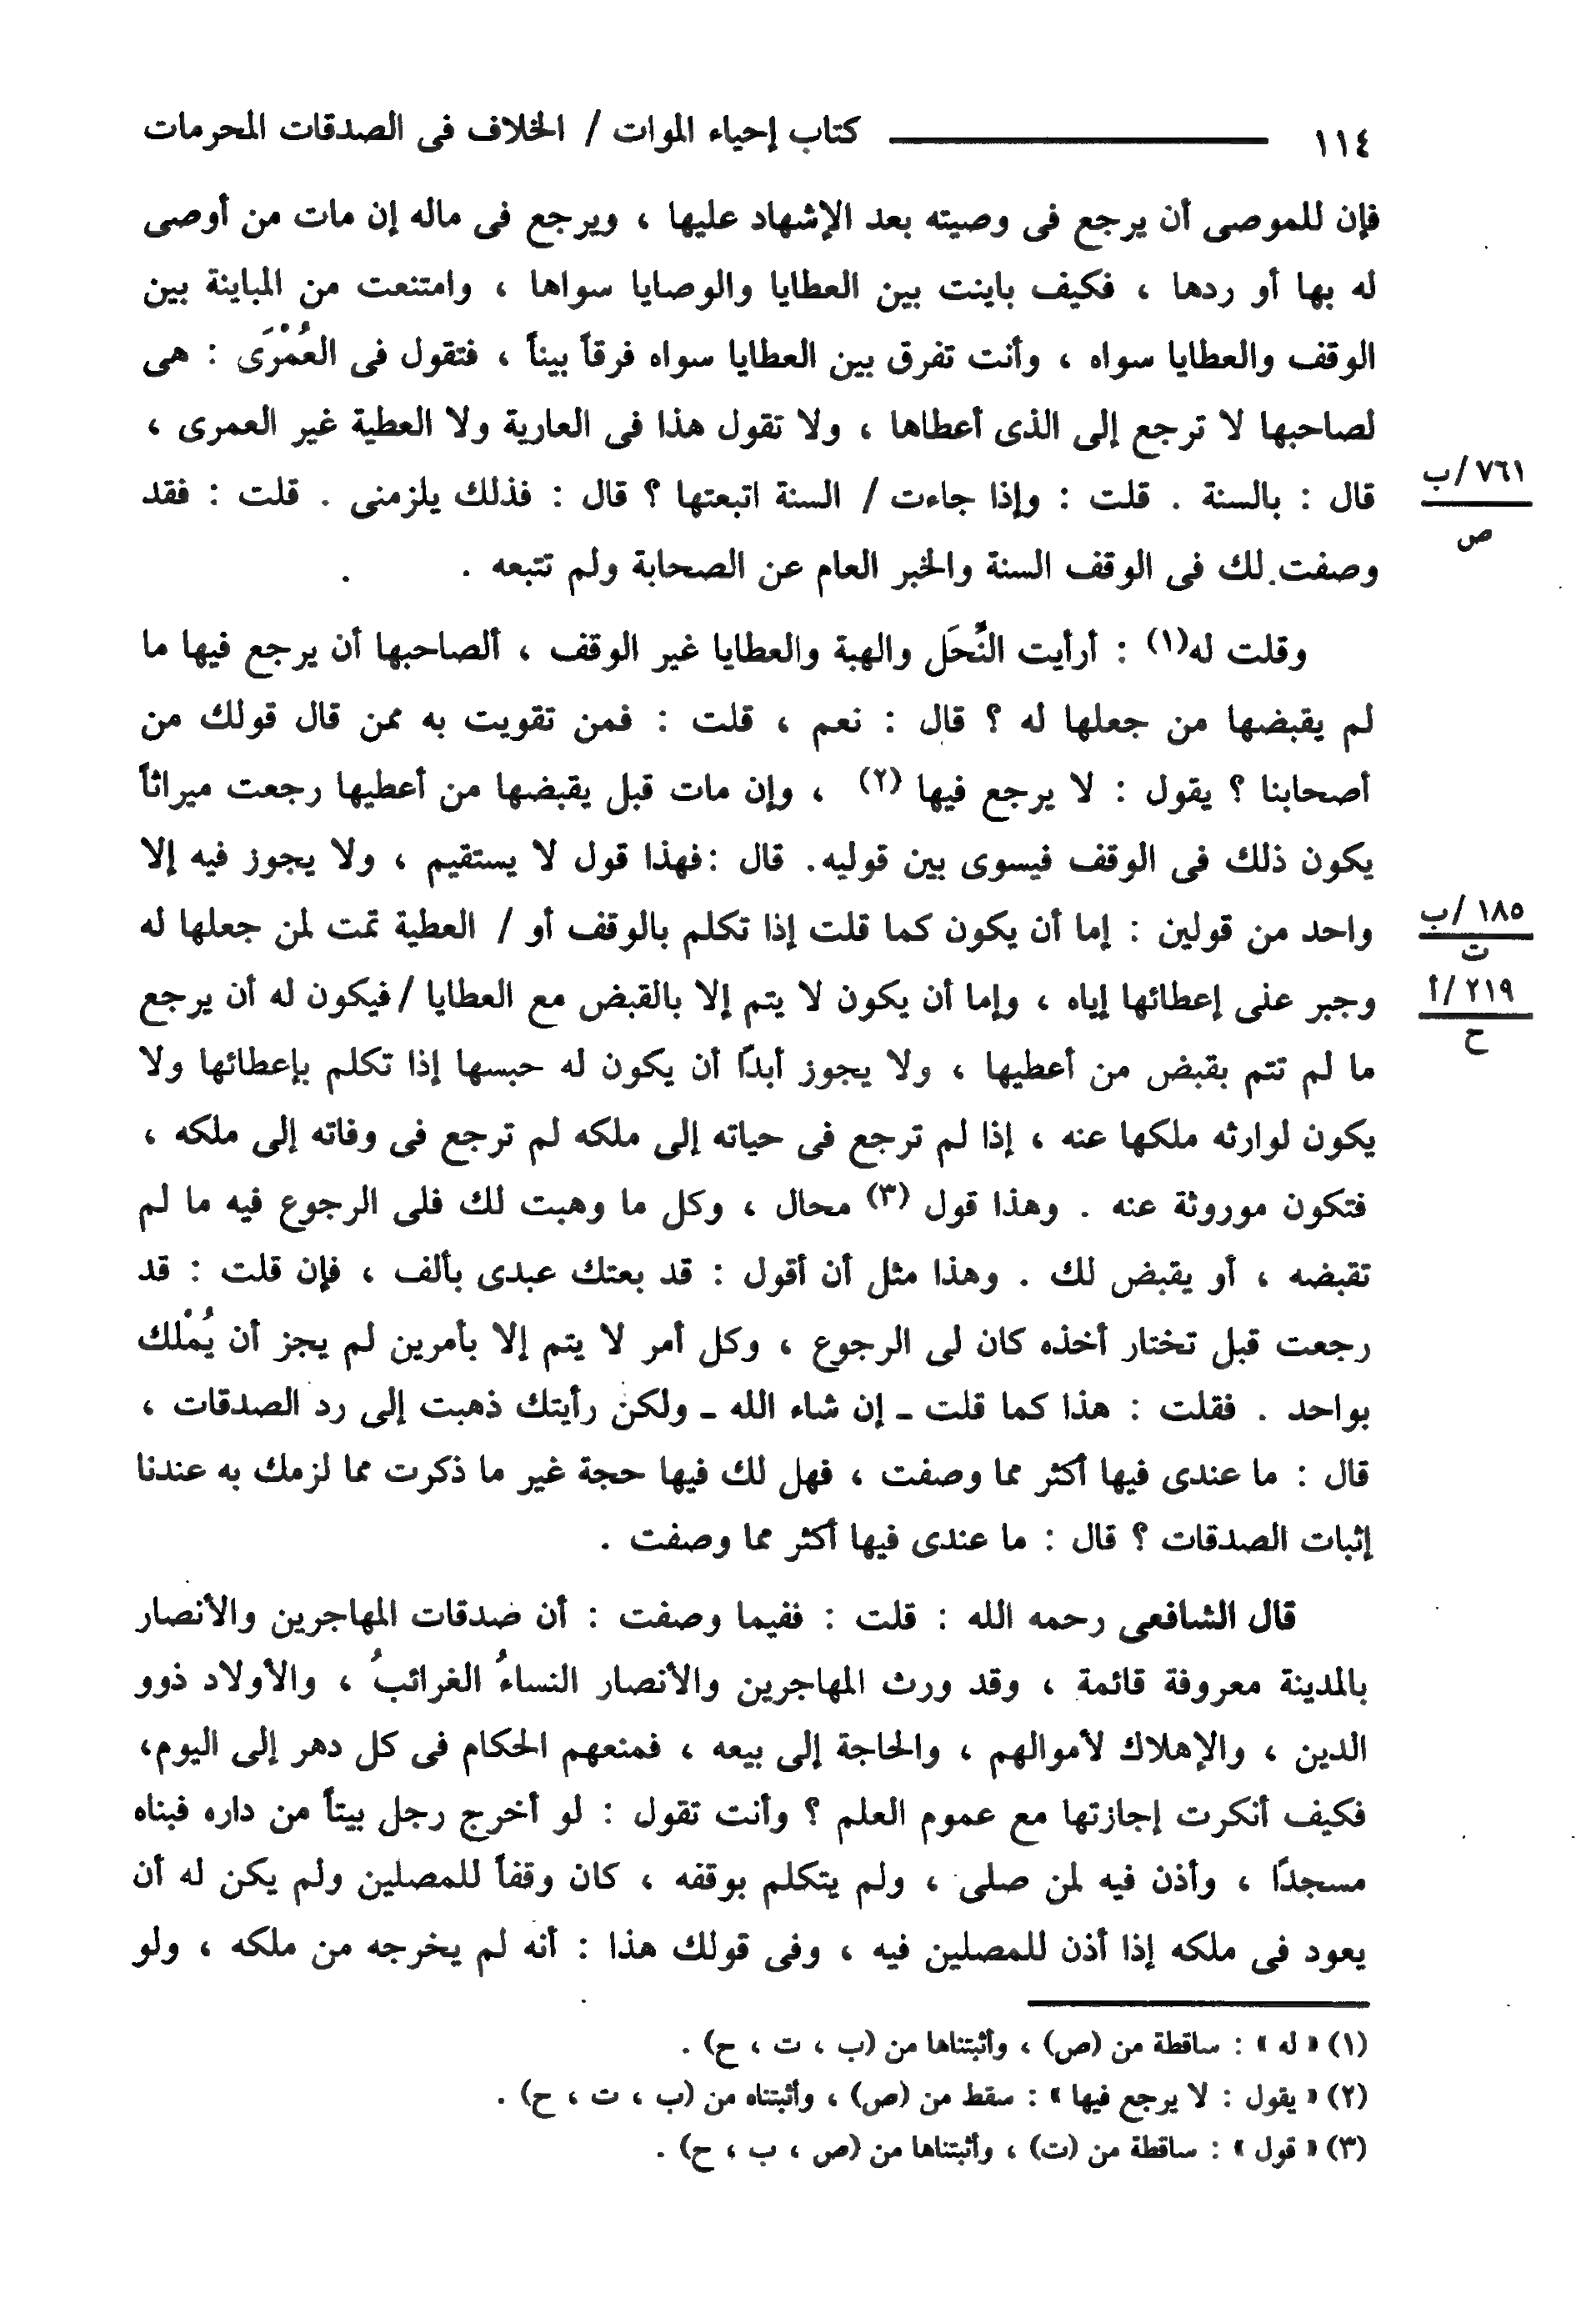 ١١٤ كتاب إحياء الموات / الخلاف فى الصدقات المحرمات
فإن للموصى أن يرجع فى وصيته بعد الإشهاد عليها ، ويرجع فى ماله إن مات من أوصى
له بها أو ردها ، فكيف باينت بين العطايا والوصايا سواها ، وامتنعت من المباينة بين
الوقف والعطايا سواه ، وأنت تفرق بين العطايا سواه فرقاً بيناً ، فتقول فى العُمْرَى : هى
لصاحبها لا ترجع إلى الذى أعطاها ، ولا تقول هذا فى العارية ولا العطية غير العمرى ،
قال : بالسنة . قلت : وإذا جاءت / السنة اتبعتها ؟ قال : فذلك يلزمنى . قلت : فقد
٧٦١ /ب
ص
وصفت لك فى الوقف السنة والخبر العام عن الصحابة ولم تتبعه .
وقلت له(١) : أرأيت النِّحَل والهبة والعطايا غير الوقف ، ألصاحبها أن يرجع فيها ما
لم يقبضها من جعلها له ؟ قال : نعم ، قلت : فمن تقويت به ممن قال قولك من
أصحابنا ؟ يقول : لا يرجع فيها (٢) ، وإن مات قبل يقبضها من أعطيها رجعت ميراثاً
يكون ذلك فى الوقف فيسوى بين قوليه. قال :فهذا قول لا يستقيم ، ولا يجوز فيه إلا
واحد من قولين : إما أن يكون كما قلت إذا تكلم بالوقف أو / العطية تمت لمن جعلها له
١٨٥ /ب
ت
وجبر على إعطائها إياه ، وإما أن يكون لا يتم إلا بالقبض مع العطايا /فيكون له أن يرجع
٢١٩ /أ
ح
ما لم تتم بقبض من أعطيها ، ولا يجوز أبدًا أن يكون له حبسها إذا تكلم بإعطائها ولا
يكون لوارثه ملكها عنه ، إذا لم ترجع فى حياته إلى ملكه لم ترجع فى وفاته إلى ملكه ،
فتكون موروثة عنه . وهذا قول (٣) محال ، وكل ما وهبت لك فلى الرجوع فيه ما لم
تقبضه ، أو يقبض لك . وهذا مثل أن أقول : قد بعتك عبدى بألف ، فإن قلت : قد
رجعت قبل تختار أخذه كان لى الرجوع ، وكل أمر لا يتم إلا بأمرين لم يجز أن يُمْلك
بواحد . فقلت : هذا كما قلت ـ إن شاء الله ـ ولكن رأيتك ذهبت إلى رد الصدقات ،
قال : ما عندى فيها أكثر مما وصفت ، فهل لك فيها حجة غير ما ذكرت مما لزمك به عندنا
إثبات الصدقات ؟ قال : ما عندى فيها أكثر مما وصفت .
قال الشافعى رحمه الله : قلت : ففيما وصفت : أن صدقات المهاجرين والأنصار
بالمدينة معروفة قائمة ، وقد ورث المهاجرين والأنصار النساءُ الغرائبُ ، والأولاد ذوو
الدين ، والإهلاك لأموالهم ، والحاجة إلى بيعه ، فمنعهم الحكام فى كل دهر إلى اليوم،
فكيف أنكرت إجازتها مع عموم العلم ؟ وأنت تقول : لو أخرج رجل بيتاً من داره فبناه
مسجدًا ، وأذن فيه لمن صلى ، ولم يتكلم بوقفه ، كان وقفاً للمصلين ولم يكن له أن
يعود فى ملكه إذا أذن للمصلين فيه ، وفى قولك هذا : أنه لم يخرجه من ملكه ، ولو
(١) « له » : ساقطة من (ص) ، وأثبتناها من (ب ، ت ، ح) .
(٢) « يقول : لا يرجع فيها » : سقط من (ص) ، وأثبتناه من (ب ، ت ، ح) .
(٣) « قول » : ساقطة من (ت) ، وأثبتناها من (ص ، ب ، ح) .